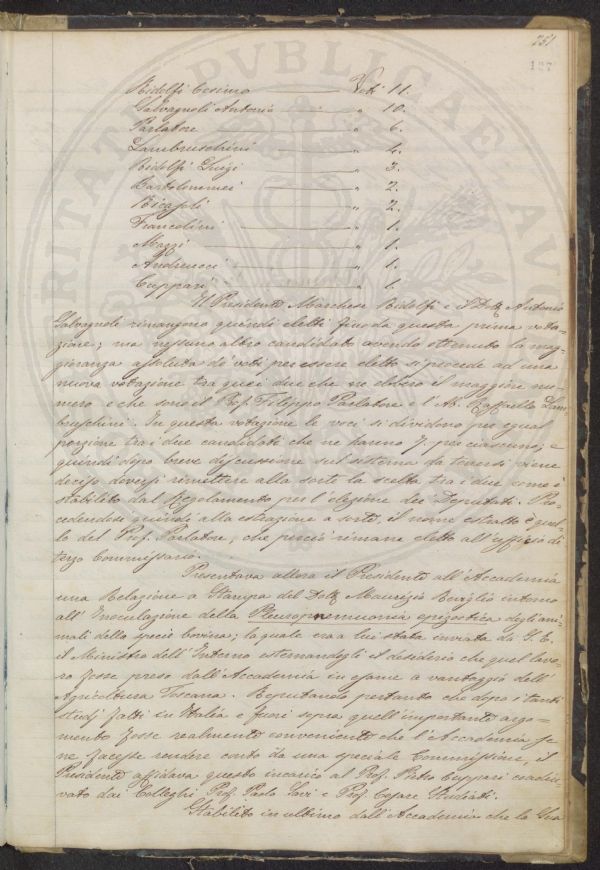 251
127
Ridolfi Cosimo Voti 11.
Salvagnoli Antonio " 10.
Parlatore " 6.
Lambruschini " 4.
Ridolfi Luigi " 3.
Bartolommei " 2.
Ricasoli " 2.
Francolini " 1.
Mazzi " 1.
Andreucci " 1.
Cuppari " 1.
Il Presidente Marchese Ridolfi e il Dott. Antonio
Salvagnoli rimangono quindi eletti fino da questa prima vota-
zione; ma nessun altro candidato avendo ottenuto la mag-
gioranza assoluta de' voti per essere eletto si procede ad una
nuova votazione tra quei due che ne ebbero il maggior nu-
mero e che sono il Prof. Filippo Parlatore e l'Ab. Raffaello Lam-
bruschini. In questa votazione le voci si dividono per egual
porzione tra i due candidati che ne hanno 7. per ciascuno; e
quindi dopo breve discussione sul sistema da tenersi viene
deciso doversi rimettere alla sorte la scelta tra i due come è
stabilito dal Regolamento per l'elezione dei Deputati. Pro-
cedendosi quindi alla estrazione a sorte, il nome estratto è quel-
lo del Prof. Parlatore, che perciò rimane eletto all'uffizio di
terzo Commissario.
Presentava allora il Presidente all'Accademia
una Relazione a Stampa del Dott. Maurizio Reviglio intorno
all'Inoculazione della Pleuropneumonia epizootica degli ani-
mali della specie bovina; la quale era a lui stata inviata da S. E.
il Ministro dell'Interno esternandogli il desiderio che quel lavo-
ro fosse preso dall'Accademia in esame a vantaggio dell'
Agricoltura Toscana. Reputando pertanto che dopo i tanti
studj fatti in Italia e fuori sopra quell'importante argo-
mento fosse realmente conveniente che l'Accademia se
ne facesse rendere conto da una speciale Commissione, il
Presidente affidava questo incarico al Prof. Pietro Cuppari coadiu-
vato dai Colleghi Prof. Paolo Savi e Prof. Cesare Studiati.
Stabilito in ultimo dall'Accademia che la Sua